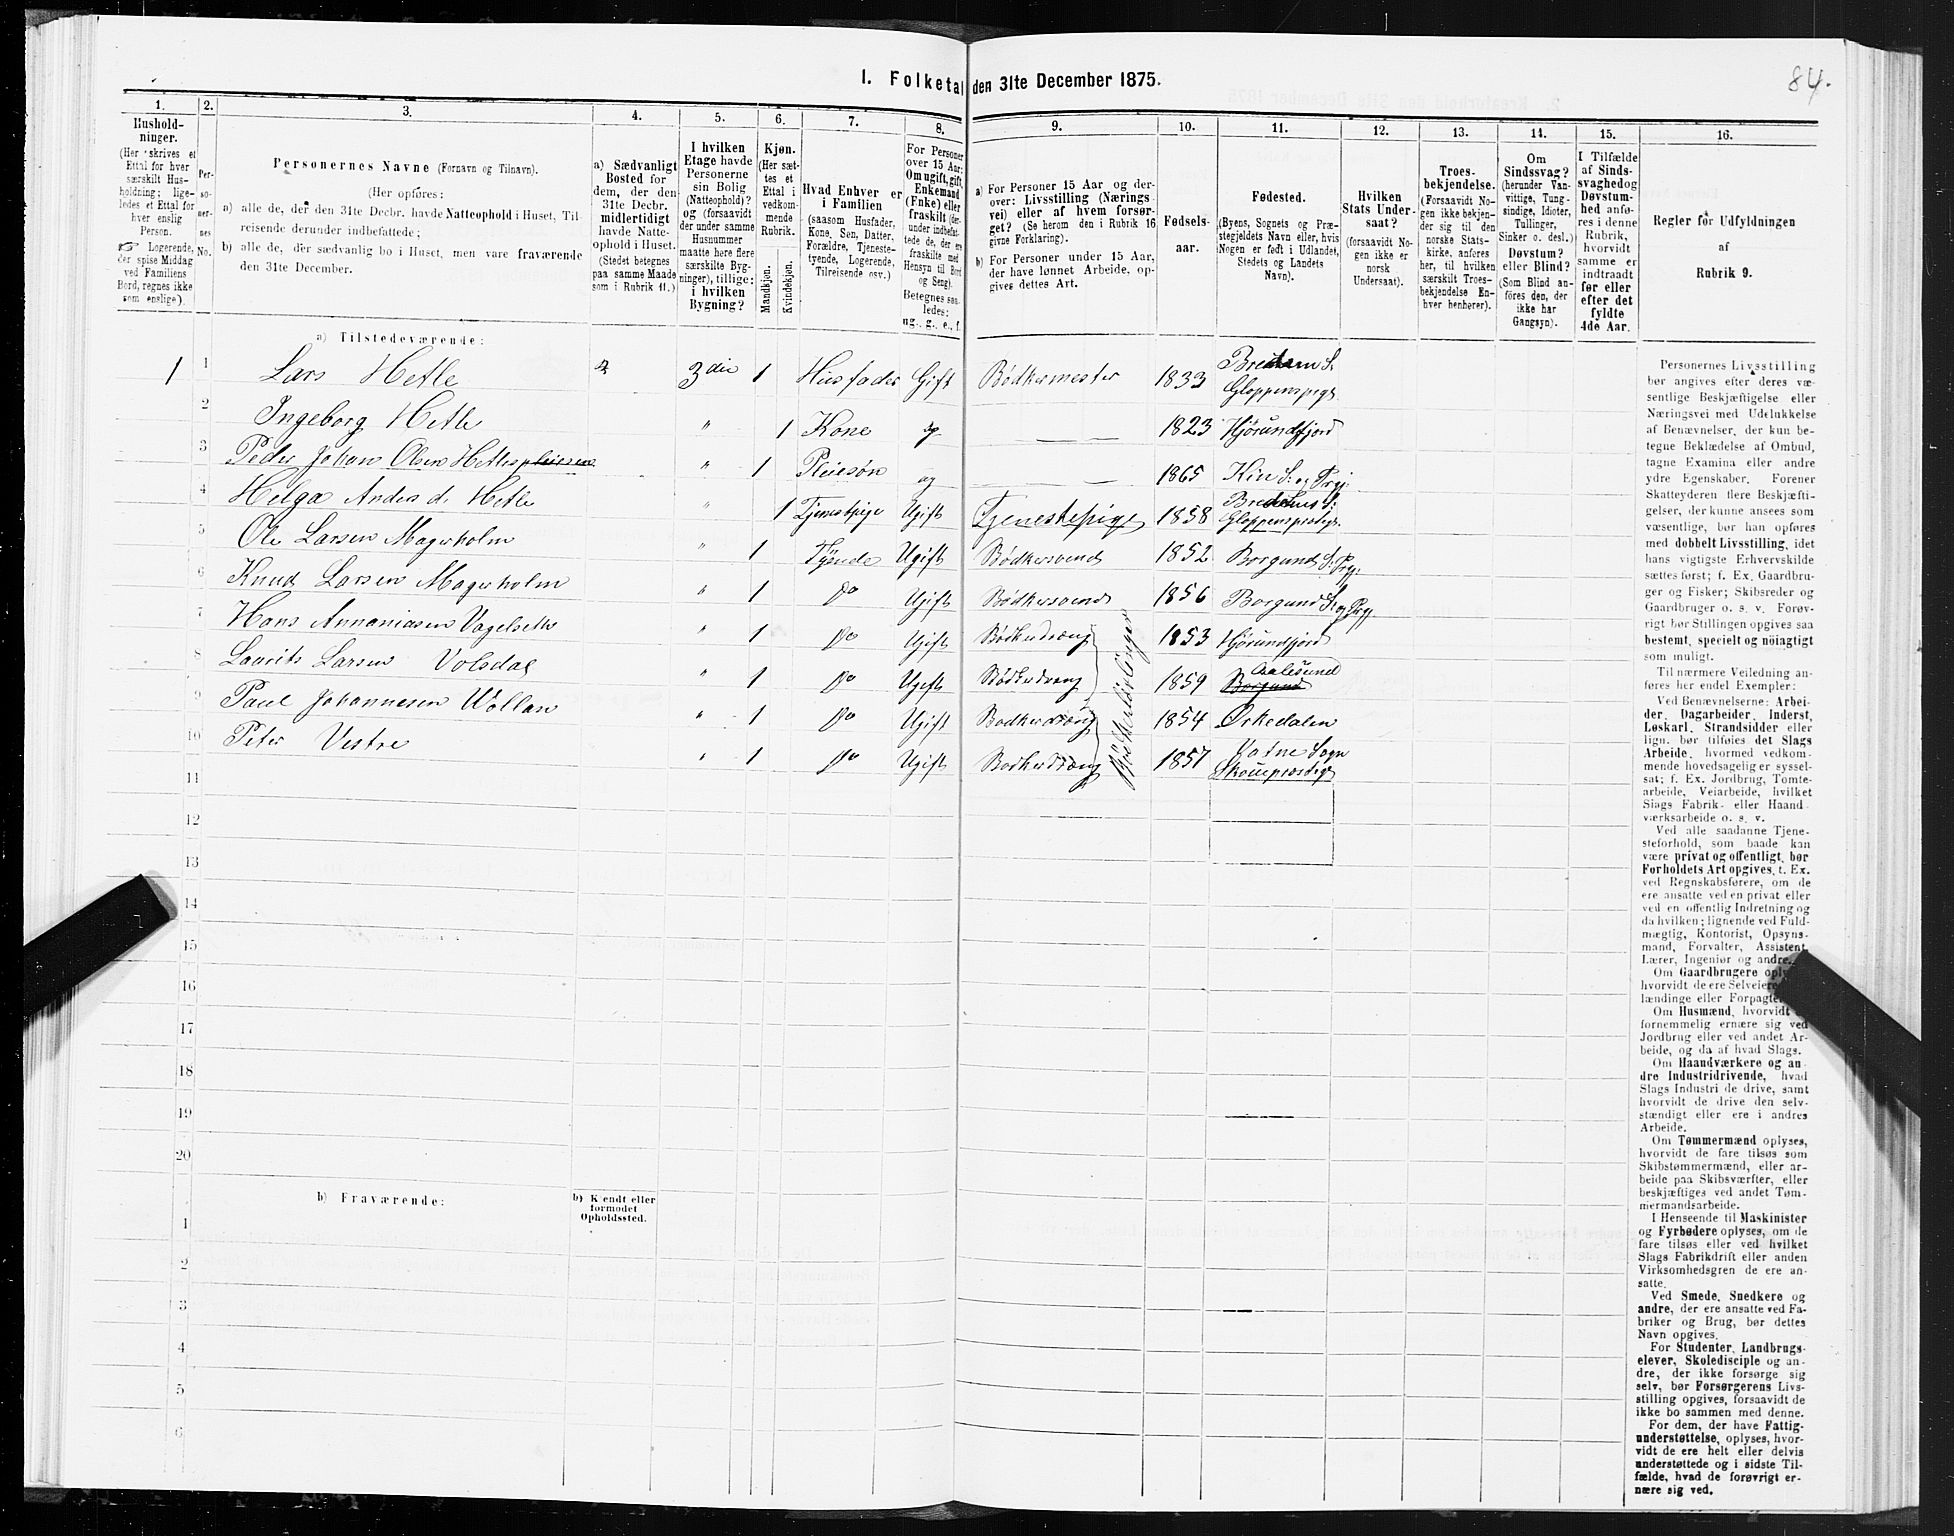 84.
I. Folketal den 31te December 1875.
1.
2.
3.
4.
5.
6.
7.
8.
9.
10.
11.
12.
13.
14.
15.
16.
Husholdninger.
(Her skrives et
Ettal for hver
særskilt Husholdning; ligeledes et Ettal for
hver enslig
Person.
☞ Logerende,
der spise Middag
ved Familiens
Bord, regnes ikke
som enslige).
Personernes No.
Personernes Navne (Fornavn og Tilnavn).
(Her opføres:
a) alle de, der den 31te Decbr. havde Natteophold i Huset, Tilreisende derunder indbefattede;
b) alle de, der sædvanlig bo i Huset, men vare fraværende
den 31te December.
a) Sædvanligt
Bosted for
dem, der den
31te Decbr.
midlertidigt
havde Natteophold i Huset.
(Stedet betegnes
paa samme Maade
som i Rubrik 11.)
I hvilken
Etage havde
Personerne
sin Bolig
(Natteophold)?
og (forsaavidt
der under samme
Husnummer
maatte høre flere
særskilte Bygninger), tillige:
i hvilken
Bygning?
Kjøn.
(Her sættes et
Ettal i
vedkommende
Rubrik.
Mandkjøn.
Kvindekjøn.
Hvad Enhver er
i Familien
(saasom Husfader,
Kone, Søn, Datter,
Forældre, Tjenestetyende, Logerende,
Tilreisende osv.)
For Personer
over 15 Aar:
Om ugift, gift,
Enkemand
(Enke) eller
fraskilt (derunder indbefattede de, der ere
fraskilte med
Hensyn til Bord
og Seng).
Betegnes saaledes:
ug., g., e., f.
a) For Personer 15 Aar og derover: Livsstilling (Næringsvei) eller af hvem forsørget? (Se herom den i Rubrik 16
givne Forklaring).
b) For Personer under 15 Aar,
der have lønnet Arbeide, opgives dettes Art.
Fødselsaar.
Fødested.
(Byens, Sognets og Præstegjeldets Navn eller, hvis
Nogen er født i Udlandet,
Stedets og Landets
Navn).
Hvilken
Stats Undersaat?
(forsaavidt Nogen ikke er
norsk
Undersaat).
Troesbekjendelse.
(Forsaavidt Nogen ikke bekjender sig til den
norske Statskirke, anføres
her, til hvilken
særskilt Troesbekjendelse Enhver henhører).
Om
Sindssvag?
(herunder Vanvittige, Tungsindige, Idioter,
Tullinger,
Sinker o. desl.)
Døvstum?
eller Blind?
(Som Blind anføres den, der
ikke har
Gangsyn).
I Tilfælde
af Sindssvaghed og
Døvstumhed anføres i denne
Rubrik,
hvorvidt
samme er
indtraadt
før eller
efter det
fyldte
4de Aar.
Regler for Udfyldningen
af
Rubrik 9.
a) Tilstedeværende:
1 1 Lars Hetle 3die 1 Husfader Gift Bødkermester 1833 Bredem S. Gloppenspgt
2 Ingeborg Hetle " 1 Kone 1823 Hjørundfjord
3 Peder Johan Olsen Hetles pleiesøn " 1 Pleiesøn ug 1865 Kin S. og Prgj:
4 Helga Andersd. Hetle " 1 Tjenestpige Ugift Tjenestepige 1858 Gloppensprstgt.
5 Ole Larsen Magerholm " 1 Tyende Ugift Bødkersvend 1852 Borgund S. Prgj:
6 Knud Larsen Magerholm " 1 Do Ugift Bødkersvend 1856 Borgund S. og Prgj
7 Hans Annaniasen Vagelseth " 1 Do Ugift Bødkerdreng 1853 Hjørundfjord
8 Laurits Larsen Volsdal " 1 Do Ugift Bødkerdreng 1859 Borgund Aalesund
9 Paul Johannesen Wollan " 1 Do Ugift Bødkerdreng 1854 Ørkedalen
10 Peter Vestre " 1 Do Ugift Bødkerdreng 1857 Vatne Sogn Skoueprestigt
Bødkerlærlinger
11
12
13
14
15
16
17
18
19
20
b) Fraværende:
b) Kjendt eller
formodet
Opholdssted.
1
2
3
4
5
6
Personernes Livsstilling
bør angives efter deres væsentlige Beskjæftigelse eller
Næringsvei med Udelukkelse
af Benævnelser, der kun betegne Beklædelse af Ombud,
tagne Examina eller andre
ydre Egenskaber. Forener
Skatteyderen flere Beskjæftigelser, der kunne ansees som
væsentlige, bør han opføres
med dobbelt Livsstilling, idet
hans vigtigste Erhvervskilde
sættes først; f. Ex. Gaardbruger og Fisker; Skibsreder og
Gaardbruger o. s. v. Forøvrigt bør Stillingen opgives saa
bestemt, specielt og nöiagtigt
som muligt.
Til nærmere Veiledning anføres her endel Exempler:
Ved Benævnelserne: Arbeider, Dagarbeider, Inderst,
Løskarl, Strandsidder eller
lign. bør tilføies det Slags
Arbeide, hvormed vedkommende hovedsagelig er sysselsat; f. Ex. Jordbrug, Tomtearbeide, Veiarbeide, hvilket
Slags Fabrik- eller Haandværksarbeide o. s. v.
Ved alle saadanne Tjenesteforhold, som baade kan
være privat og offentligt, bør
Forholdets Art opgives, t. Ex.
ved Regnskabsførere, om de
ere ansatte ved en privat eller
ved en offentlig Indretning og
da hvilken; lignende ved Fuldmægtig, Kontorist, Opsynsmand, Forvalter, Assistent,
Lærer, Ingeniør og andre.
Om Gaardbrugere oplyses,
hvorvidt de ere Selveiere,
lændinge eller Forpagtere.
Om Husmænd, hvorvidt de
fornemmelig ernære sig ved
Jordbrug eller ved andet Arbeide, og da af hvad Slags.
Om Haandværkere og andre Industridrivende, hvad
Slags Industri de drive, samt
hvorvidt de drive den selvstændigt eller ere i andres
Arbeide.
Om Tømmermænd oplyses,
hvorvidt de fare tilsøs som
Skibstømmermænd, eller arbeide paa Skibsværfter, eller
beskjæftiges ved andet Tømmermandsarbeide.
I Henseende til Maskinister
og Fyrbødere oplyses, om de
fare tilsøs eller ved hvilket
Slags Fabrikdrift eller anden
Virksomhedsgren de ere ansatte.
Ved Smede, Snedkere og
andre, der ere ansatte ved Fabriker og Brug, bør dettes
Navn opgives.
For Studenter, Landbrugselever, Skoledisciple og andre, der ikke forsørge sig
selv, bør Forsørgerens Livsstilling opgives, forsaavidt de
ikke bo sammen med denne.
For dem, der have Fattigunderstøttelse, oplyses, hvorvidt de ere helt eller delvis
understøttede og i sidste Tilfælde, hvad de forøvrigt ernære sig ved.